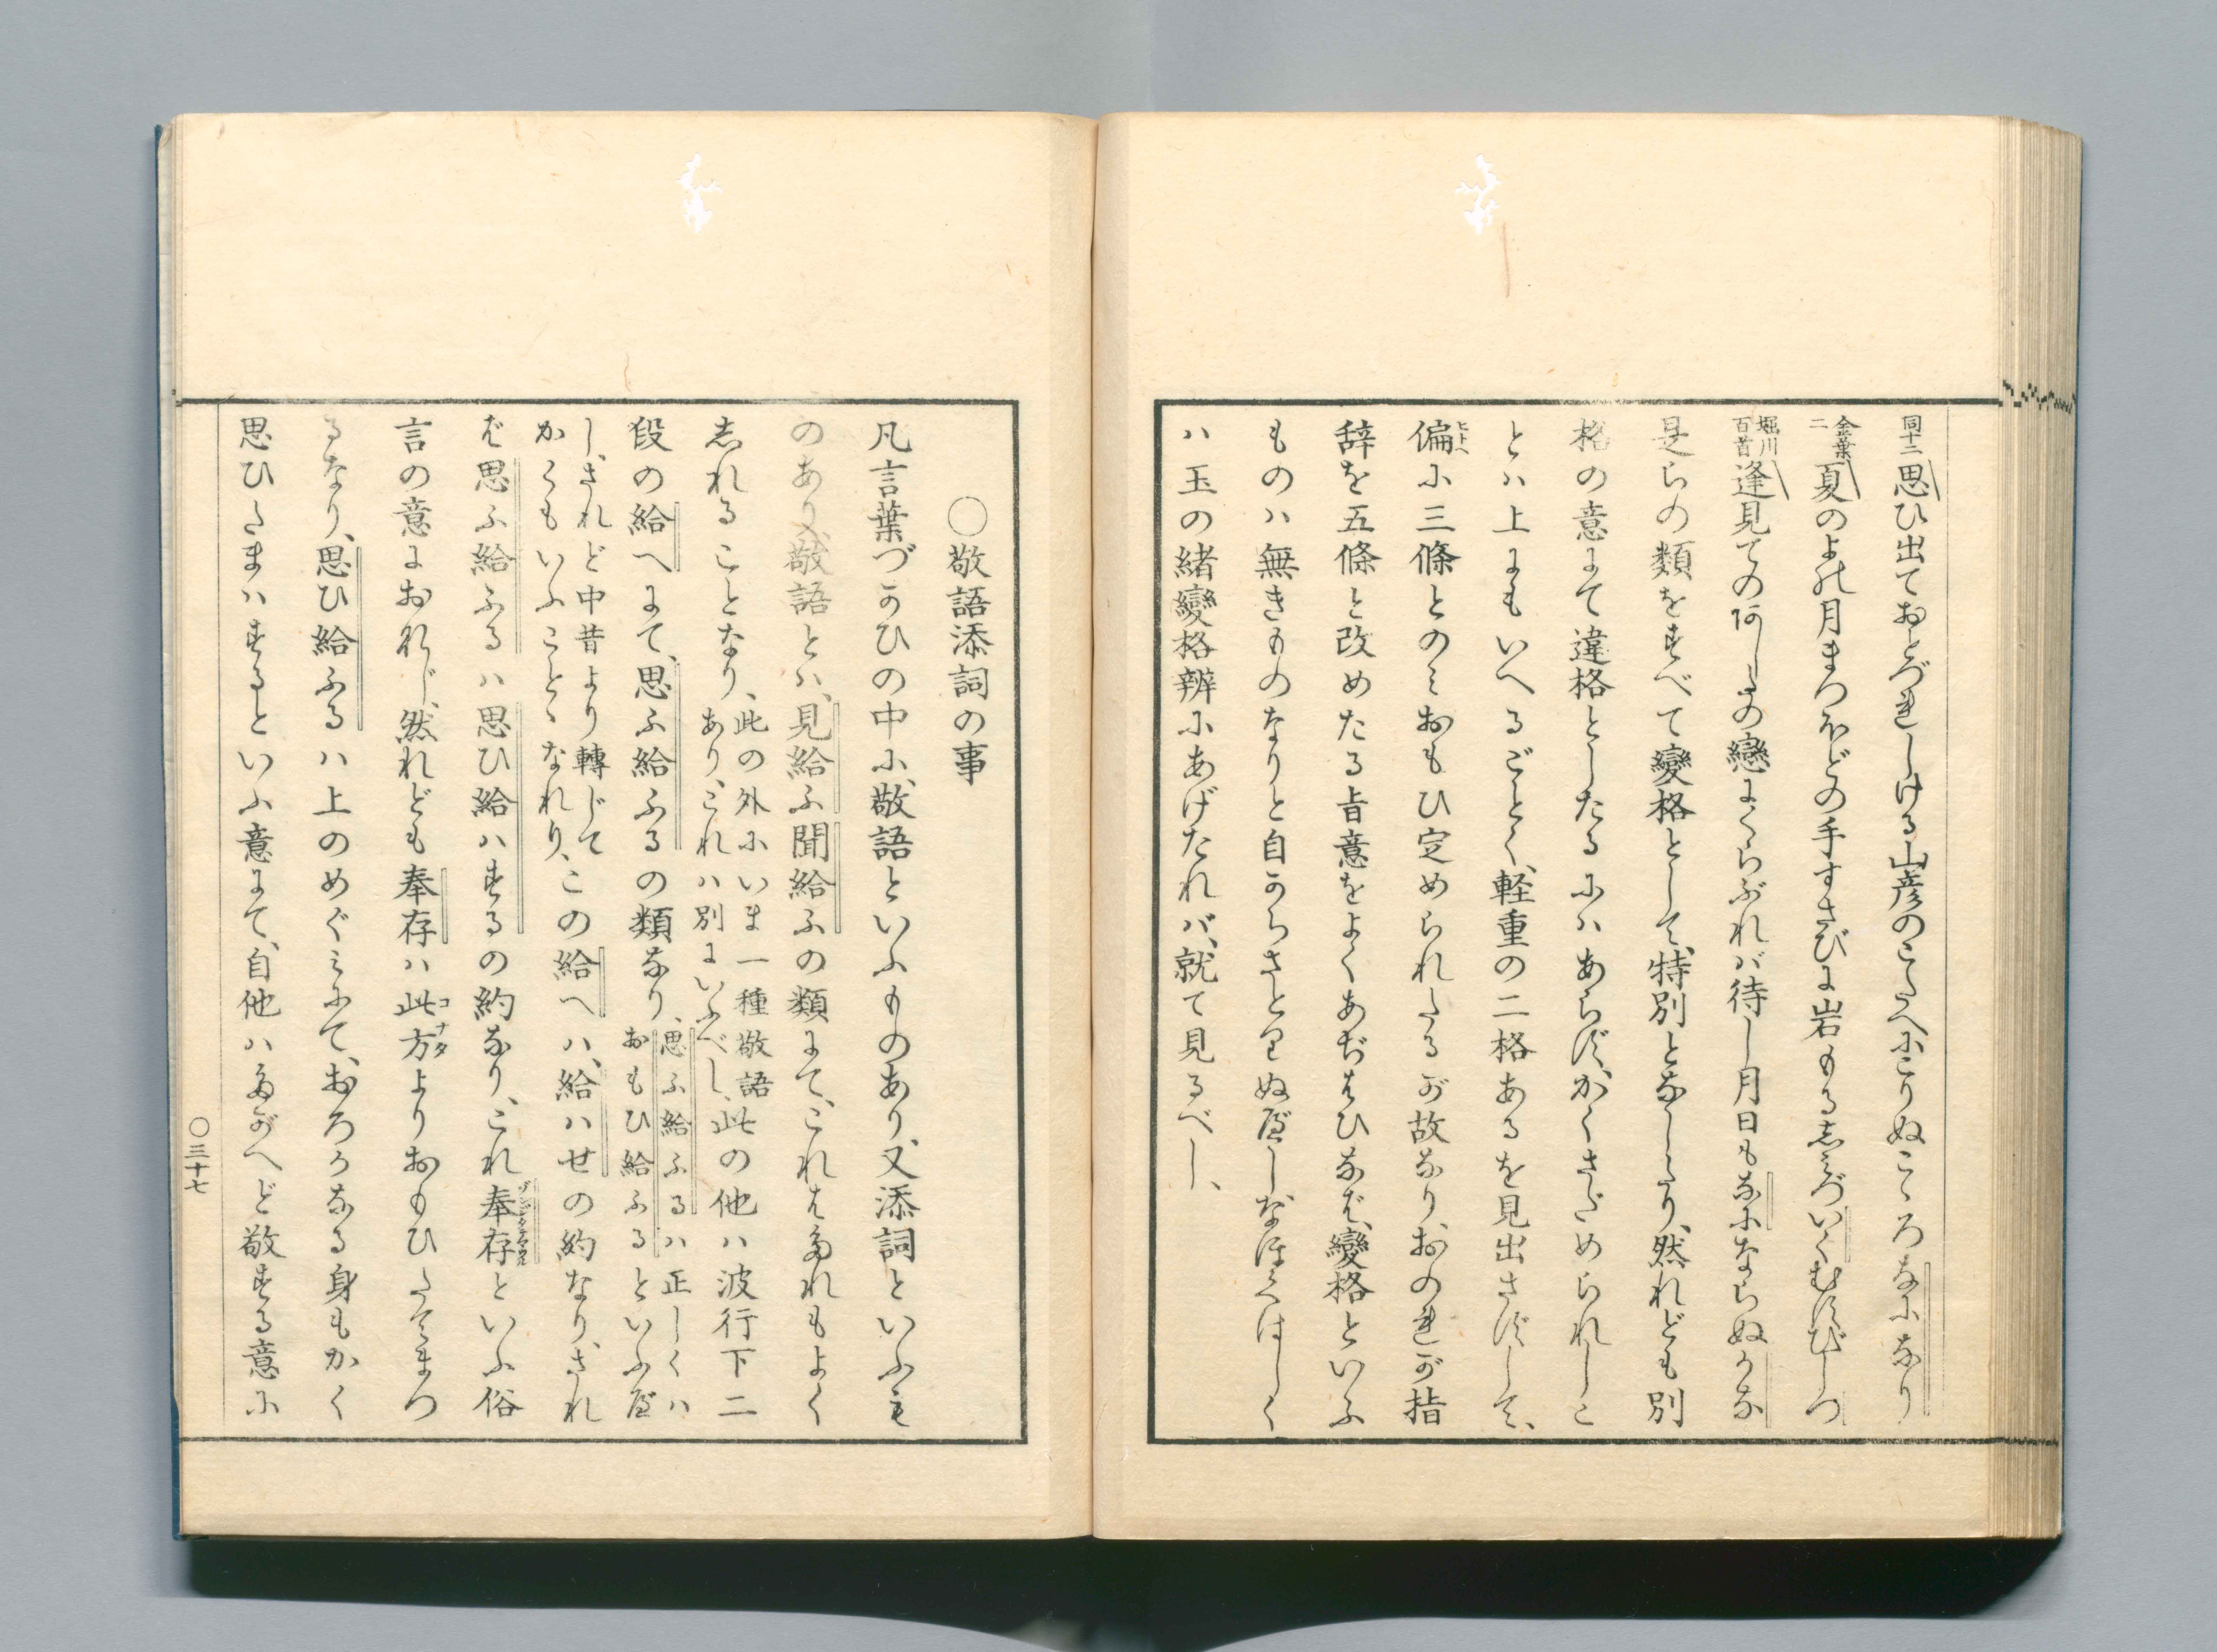 同十二 思ひ出ておとづれしける山彦のこたへにこりぬこゝろなになり
金葉二 夏のよの月まつほどの手すさびに岩もるしみづいくむすびしつ
堀川百首 逢見ての阿したの戀にくらぶれバ待し月日もなにならぬかな
是らの類をすべて變格として、特別となしゝなり、然れども別
格の意にて違格としたるにハあらず、かくさだめられしこ
とハ上にもいへるごとく、軽重の二格あるを見出さずして、
偏ヒトヘに三條とのミおもひ定められたるが故なり、おのれが指
辞を五條と改めたる旨意をよくあぢはひなば、變格といふ
ものハ無きものなりと自からさとりぬべし、なほくはしく
ハ玉の緒變格辨にあげたれバ、就て見るべし、
〇敬語添詞の事
凡言葉づかひの中に、敬語といふものあり、又添詞といふも
のあり、敬語とハ、見給ふ聞給ふの類にて、これはたれもよく
しれることなり、此の外にいま一種敬語ありこれハ別にいふべし、此の他ハ波行下二
段の給へにて、思ふ給ふるの類なり、思ふ給ふるハ正しくハおもひ給ふるといふべ
し、されど中昔より轉じてかくもいふことゝなれり、この給へハ、給ハせの約なり、され
ば思ふ給ふるハ思ひ給ハするの約なり、これ奉存といふ俗
言の意におなじ、然れども奉存ハ此方コナタよりおもひたてまつ
るなり、思ひ給ふるハ上のめぐミにて、おろかなる身もかく
思ひたまハするといふ意にて、自他ハたがへど敬する意に
〇三十七